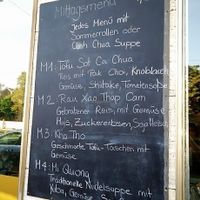 Mittagsmenü
Jedes Menü mit
Sommerrollen oder
Canh Chua Suppe
M1: Tofu Sot Ca Chua
Reis mit Pak Choi, Knoblauch
Gemüse, Shiitake, Tomatensoße
M2: Rau Xao Thap Cam
Gebratener Reis, mit Gemüse
Mais, Zuckererbsen, Sojafleisch
M3: Kho Tho
Geschmorte Tofu-Taschen mit
Gemüse
M4: Mi Quang
Traditionelle Nudelsuppe mit
Yuba, Gemüse